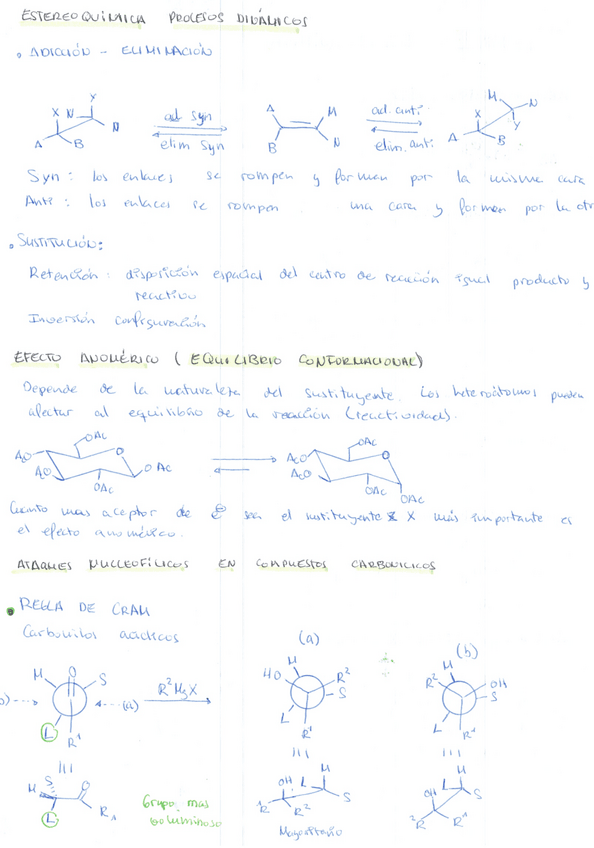 ESTEREOQUÍMICA PROCESOS DINÁMICOS
• ADICIÓN - ELIMINACIÓN
X N Y N A B
ad syn
elim syn
A M B N
ad. anti
elim. anti
M N X Y A B
Syn: los enlaces se rompen y forman por la misma cara
Anti: los enlaces se rompen una cara y forman por la otr
• SUSTITUCIÓN:
Retención: disposición espacial del centro de reacción igual producto y
reactivo
Inversión configuración
EFECTO ANOMÉRICO (EQUILIBRIO CONFORMACIONAL)
Depende de la naturaleza del sustituyente. Los heteroátomos pueden
afectar al equilibrio de la reacción (reactividad).
OAc O AcO AcO OAc OAc
OAc O AcO AcO OAc OAc
Cuanto mas aceptor de e⁻ sea el sustituyente X más importante es
el efecto anomérico.
ATAQUES NUCLEOFÍLICOS EN COMPUESTOS CARBONILICOS
• REGLA DE CRAM
Carbonilos acíclicos
(a) (b)
M O S L R¹
(a)
R²MgX
HO M R² S L R¹
R² M OH S L R¹
M S L O R₁
Grupo mas
voluminoso
OH L M S R R²
Mayoritario
OH L M S ²R R¹